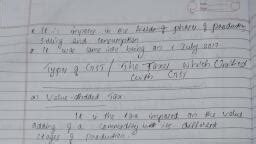 * It is imposed in the fields of phases of production
selling and consumption
* It was came into being on 1 July 2017
Types of GST / The Taxes which Clubbed
with GST
a) Value Added Tax
It is the tax imposed on the value
adding of a commodity with its different
stages of production.